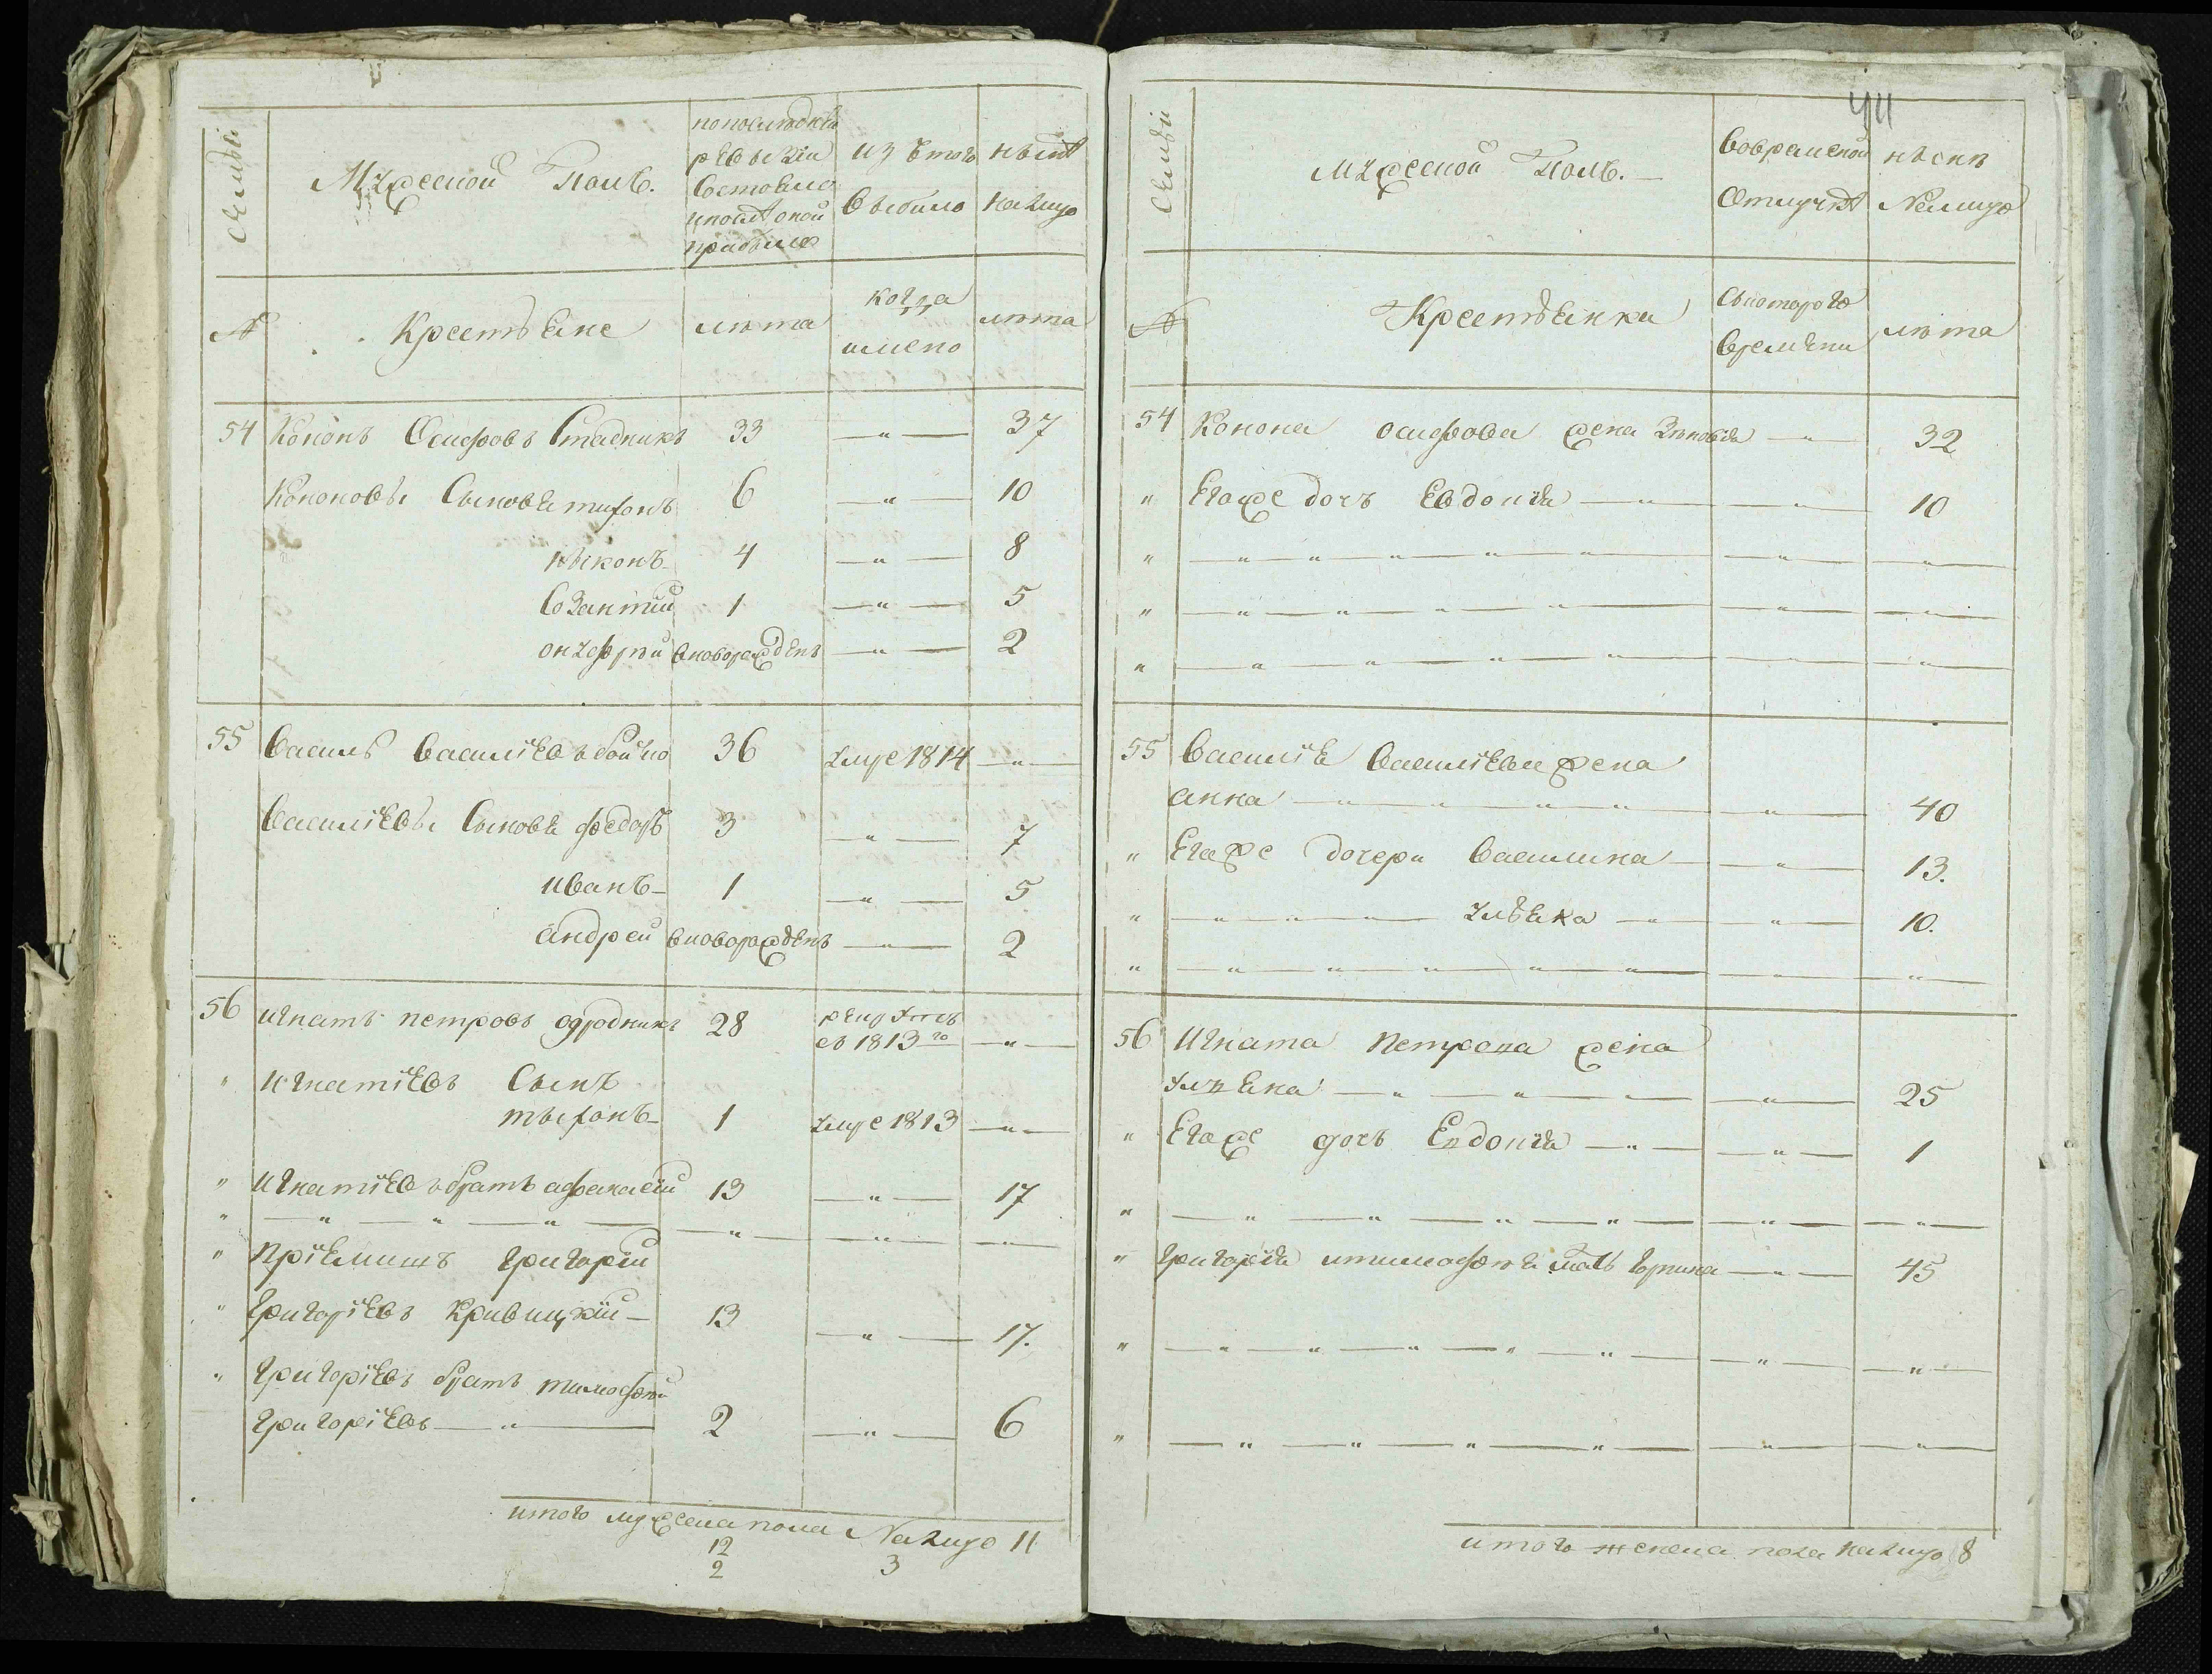 Семьи
Мужеской Полъ.
по последней
ревизіи
состояло
и после оной
прибыло
изъ того
выбыло
ныне
налицо
№
Крестьяне
лѣта
когда
имено
лѣта
54 Кононъ Осифовъ Стадникъ 33 — " — 37
Кононовы Сыновья тихонъ 6 — " — 10
никонъ 4 — " — 8
Созантий 1 — " — 5
онуфрѣй вноворожденъ — " — 2
55 Василь Василіевъ бойко 36 умре 1814 — " —
Василіевы Сыновья федоръ 3 — " — 7
иванъ 1 — " — 5
андрей вноворожденъ — 2
56 игнатъ петровъ 28
съ 1813 го — " —
" игнатіевъ Сынъ
тихонъ 1 умре 1813 — " —
" игнатіевъ братъ афанасій 13 — " — 17
" — " — " — " — " — " — " —
" пріемишъ григорій
" григоріевъ Кривицкій 13 — " — 17.
" григоріевъ братъ тимофѣй
григоріевъ — " — 2 — " — 6
итого мужеска пола Налицо 11
12 3
2
44
Семьи
Мужеской Полъ.
Вовременой
Отлучкѣ
нынѣ
Налицо
№
Крестьянки
Съкоторого
времени
лѣта
54 Конона осифова жена Зѣновія — " — 32
" Егоже дочъ Евдокія — " — " — 10
" — " — " — " — " — " — " — " —
" — " — " — " — " — " — " — " —
" — " — " — " — " — " —
55 Василія Василіева жена
анна — " — " — " — " — " — 40
" Егоже дочери Василина — " — 13.
" — Ульяна — " — " — 10.
" — " — " — " — " — " — " — " —
56 Игната Петрова жена
Ульяна — " — " — " — 25
" Егоже дочъ Евдокія — " — " — 1
" — " — " — " — " — " — " —
" григорія итимофѣя мать Ирина — " — 45
" — " — " — " — " — " — " — " —
" — " — " — " — " — " — " —
итого женска пола налицо 8